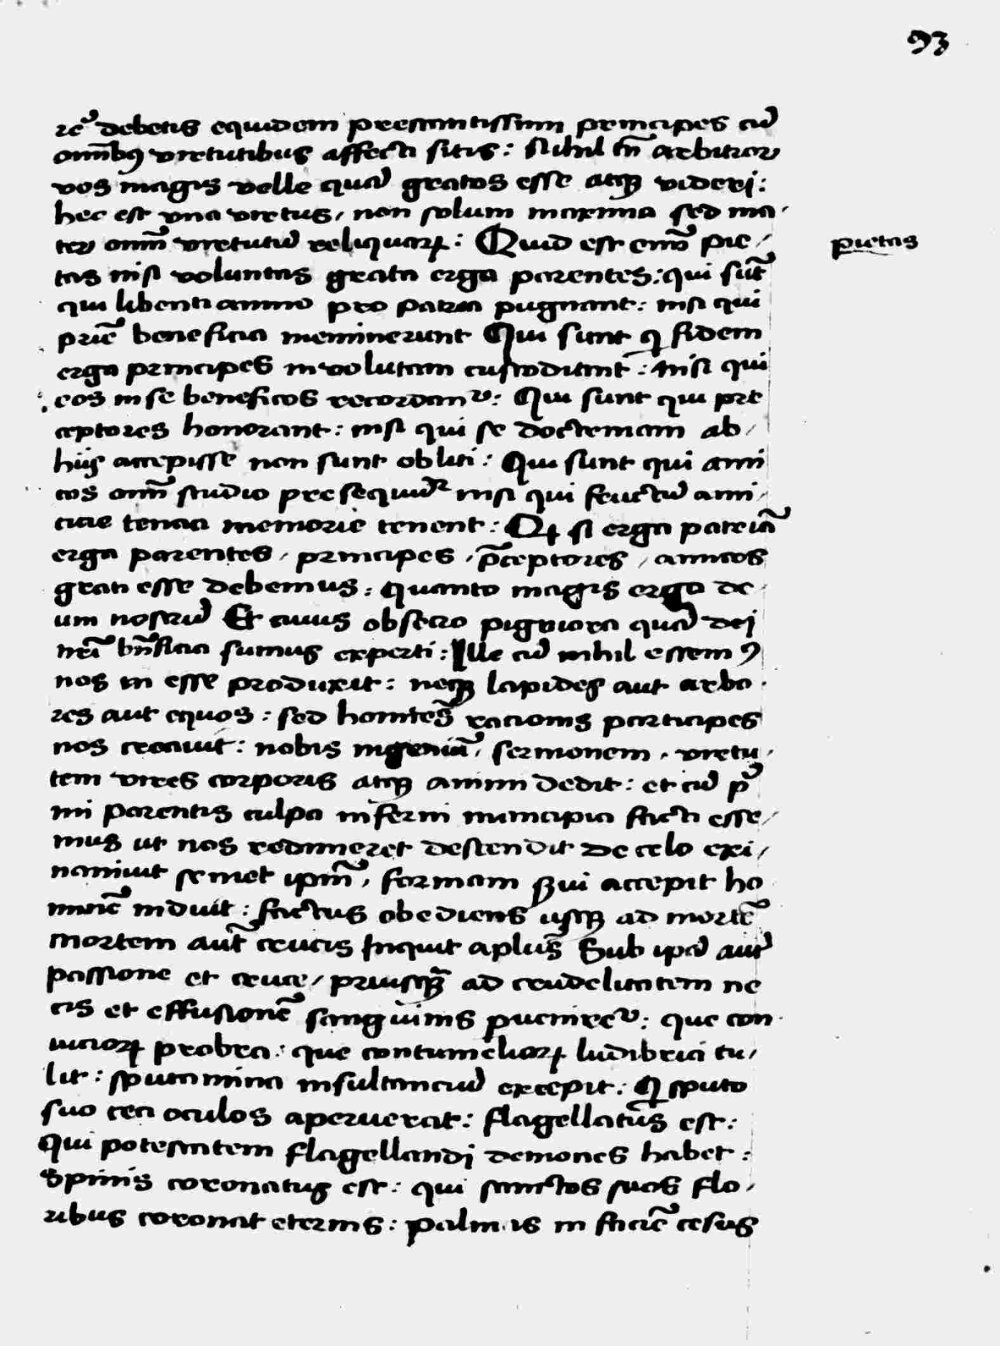 93
re᷒ debetis equidem prestantissimi principes cū
omībꝯ virtutibus affecti sitis: Nihil tn̄ arbitror
vos magis velle quā gratos esse atqꝫ videri:
hec est vna virtus / non solum maxima sed ma-
ter oīm virtutū reliquaꝝ: Quid est em̄ pie/
pietas
tas nisi voluntas grata erga parentes: qui sūt
qui libenti animo pro patria pugnant: nisi qui
prīe beneficia meminerunt Qui sunt q̄ fidem
erga principes inuolutam custodiunt: Nisi qui
eos in se beneficos recordant᷑: Qui sunt qui pre
ceptores honorant: nisi qui se doctrinam ab/
hijs accepisse non sunt obliti: Qui sunt qui ami
cos om̄i studio prosequunt᷑ nisi qui fructū ami/
cicie tenaci memorie tenent: Qꝫ si erga patriā
erga parentes / principes / p̄ceptores / amicos
grati esse debemus: quanto magis ergo de-
um nostrū Et cuius obsecro pigniora quā dei
nrī bn̄ficia sumus experti: Ille cū nihil essemꝯ
nos in esse produxit: neqꝫ lapides aut arbo-
res aut equos: sed homīes racionis participes
nos creauit: nobis ingeniū / sermonem / virtu/
tem vires corporis atqꝫ animi dedit: et cū p̄
mi parentis culpa inferni mancipia facti esse/
mus ut nos redimeret descendit de celo exi/
naniuit semet ipm̄ / formam s̄ui accepit ho
minē induit: factus obediens usqꝫ ad mortē
mortem aut̄ crucis Inquit aplus̄ Sub ipā aut̄
passione et cruce / priusqꝫ̄ ad crudelitatem ne
cis et effusionē sanguinis pueniret᷑: que con-
uicioꝝ probra: que contumelioꝝ ludibria tu/
lit: sputamina insultanciū excepit: Qꝫ sputo
suo ceci oculos aperuerat: flagellatus est:
Qui potestatem flagellandi demones habet:
Spinis coronatus est: qui sanctos suos flo/
ribus coronat eternis: palmis in faciē cesus